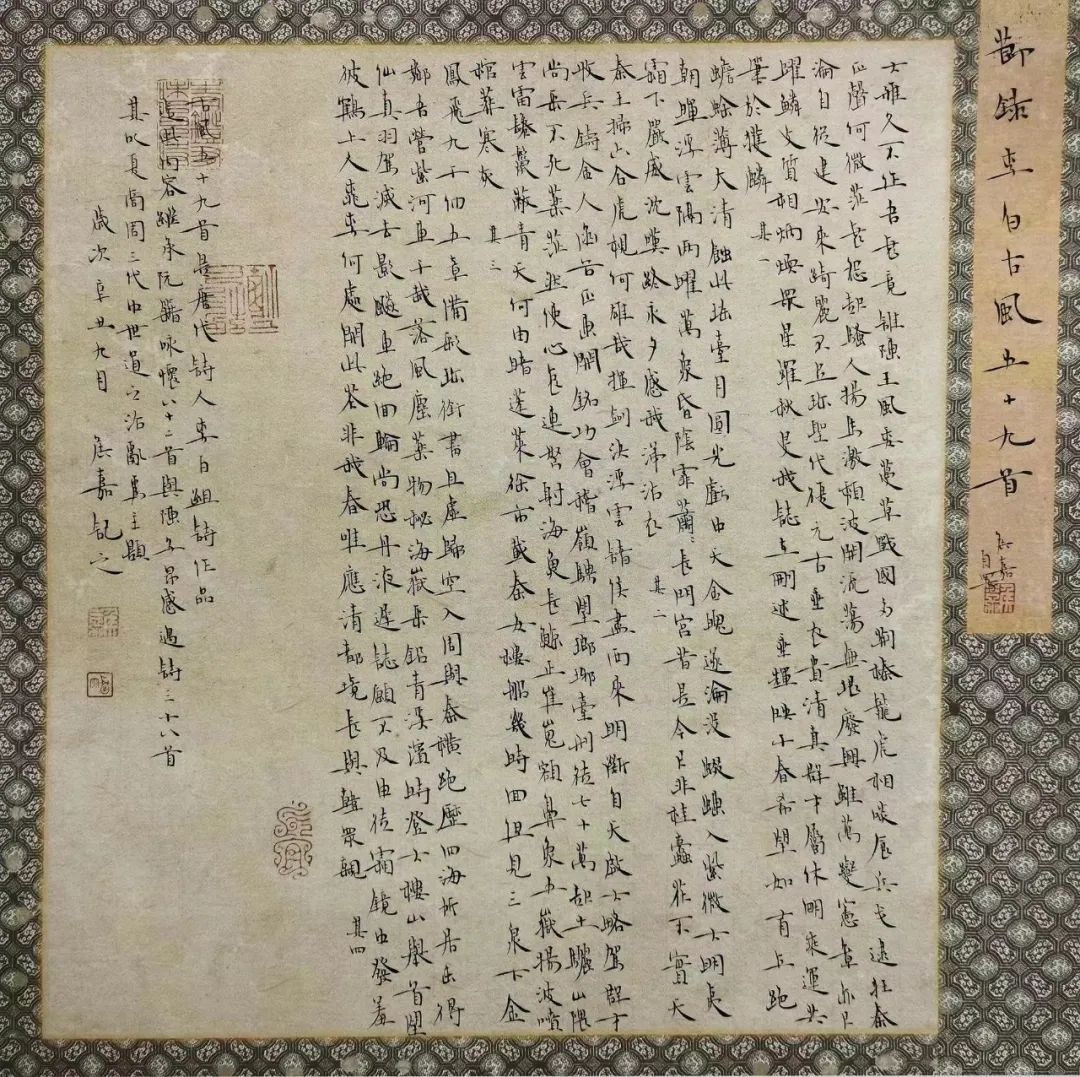 節録李白古風五十九首
嘉自署
大雅久不作吾衰竟誰陳王風委蔓草戰國多荆榛龍虎相啖食兵戈逮狂秦
正聲何微茫哀怨起騷人揚馬激頽波開流蕩無垠廢興雖萬變憲章亦已
淪自從建安來綺麗不足珍聖代復元古垂衣貴清真群才屬休明乘運共
躍鱗文質相炳煥眾星羅秋旻我誌在刪述垂輝映千春希聖如有立絕
筆於獲麟 其一
蟾蜍薄太清蝕此瑤臺月圓光虧中天金魄遂淪沒螮蝀入紫微大明夷
朝暉浮雲隔兩曜萬象昏陰霏蕭々長門宮昔是今已非桂蠹花不實天
霜下嚴威沈嘆終永夕感我涕沾衣 其二
秦王掃六合虎視何雄哉揮劍決浮雲諸侯盡西來明斷自天啟大略駕群才
收兵鑄金人函谷正東開銘功會稽嶺騁望瑯琊臺刑徒七十萬起土驪山隈
尚采不死藥茫然使心哀連弩射海魚長鯨正崔嵬額鼻象五嶽揚波噴
雲雷鬐鬣蔽青天何由睹蓬萊徐巿載秦女樓船幾時回但見三泉下金
棺葬寒灰 其三
鳳飛九千仞五章備彩珍銜書且虛歸空入周與秦橫絕歷四海所居未得
鄰吾營紫河車千載落風塵藥物秘海嶽采鉛青溪濱時登大樓山舉首望
仙真羽駕滅去影飆車絕回輪尚恐丹液遲誌願不及申徒霜鏡中發羞
彼鶴上人桃李何處開此花非我春唯應清都境長與韓眾親 其四
古風五十九首是唐代詩人李白組詩作品
内容雖承阮籍咏懷八十二首與陳子昂感遇詩三十八首
其以夏商周三代中世道之治亂爲主題
歲次辛丑九月 嘉記之